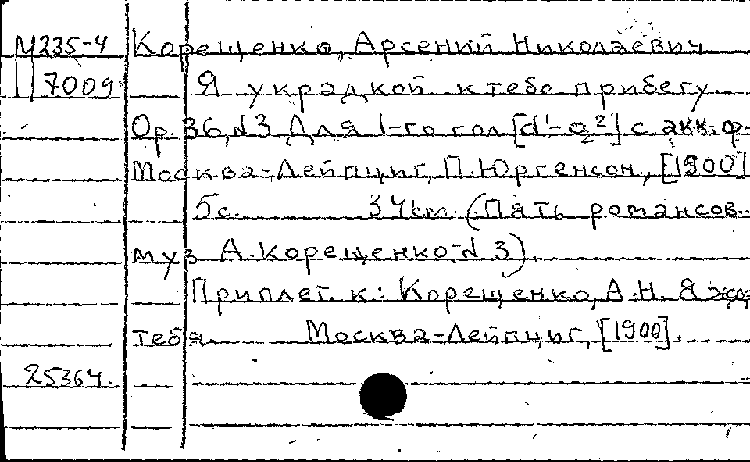 М235-4 Корещенко, Арсений Николаевич
7009 Я украдкой к тебе прибегу
Ор. 36, №3. Для 1-го гол. [d'-g²] с акк. ф-
Москва-Лейпциг, П. Юргенсон, [1900]
5с. 34см (Пять романсов
муз А. Корещенко, №3).
Приплет. к: Корещенко, А.Н. Я
тебя. Москва-Лейпциг, [1900].
25364